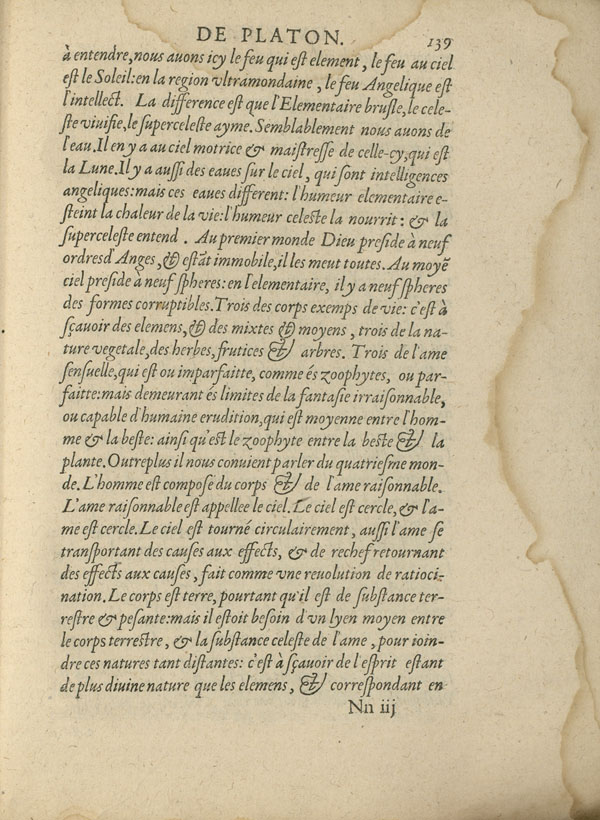 DE PLATON.
139
à entendre, nous auons icy le feu qui est element, le feu au ciel
est le Soleil: en la region vltramondaine, le feu Angelique est
l'intellect. La difference est que l'Elementaire brusle, le cele-
ste viuifie, le superceleste ayme. Semblablement nous auons de
l'eau. Il en y a au ciel motrice & maistresse de celle-cy, qui est
la Lune. Il y a aussi des eaues sur le ciel, qui sont intelligences
angeliques: mais ces eaues different: l'humeur elementaire e-
steint la chaleur de la vie: l'humeur celeste la nourrit: & la
superceleste entend. Au premier monde Dieu preside à neuf
ordres d'Anges, & estãt immobile, il les meut toutes. Au moyẽ
ciel preside à neuf spheres: en l'elementaire, il y a neuf spheres
des formes corruptibles. Trois des corps exemps de vie: c'est à
sçauoir des elemens, & des mixtes & moyens, trois de la na-
ture vegetale, des herbes, frutices & arbres. Trois de l'ame
sensuelle, qui est ou imparfaitte, comme és zoophytes, ou par-
faitte: mais demeurant és limites de la fantasie irraisonnable,
ou capable d'humaine erudition, qui est moyenne entre l'hom-
me & la beste: ainsi qu'est le zoophyte entre la beste & la
plante. Outreplus il nous conuient parler du quatriesme mon-
de. L'homme est composé du corps & de l'ame raisonnable.
L'ame raisonnable est appellee le ciel. Le ciel est cercle, & l'a-
me est cercle. Le ciel est tourné circulairement, aussi l'ame se
transportant des causes aux effects, & de rechef retournant
des effects aux causes, fait comme vne reuolution de ratioci-
nation. Le corps est terre, pourtant qu'il est de substance ter-
restre & pesante: mais il estoit besoin d'vn lyen moyen entre
le corps terrestre, & la substance celeste de l'ame, pour ioin-
dre ces natures tant distantes: c'est à sçauoir de l'esprit estant
de plus diuine nature que les elemens, & correspondant en
Nn iij